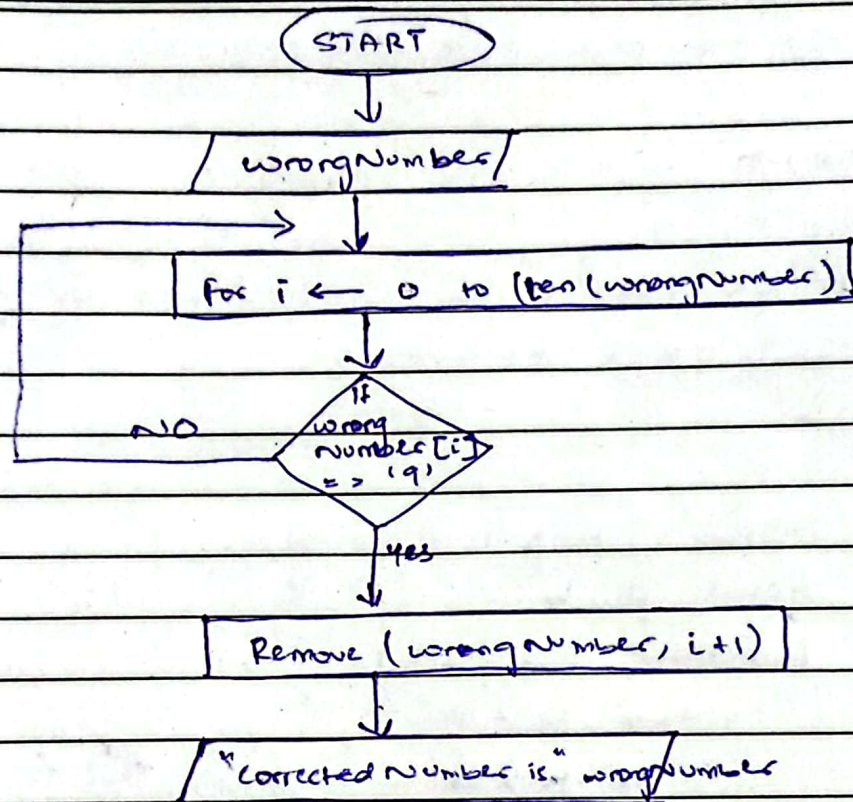 START
wrongNumber
for i ← 0 to (len (wrongNumber)
If
wrong
Number [i]
= > '9'
NO
Yes
Remove (wrongNumber, i+1)
"Corrected Number is." wrongNumber